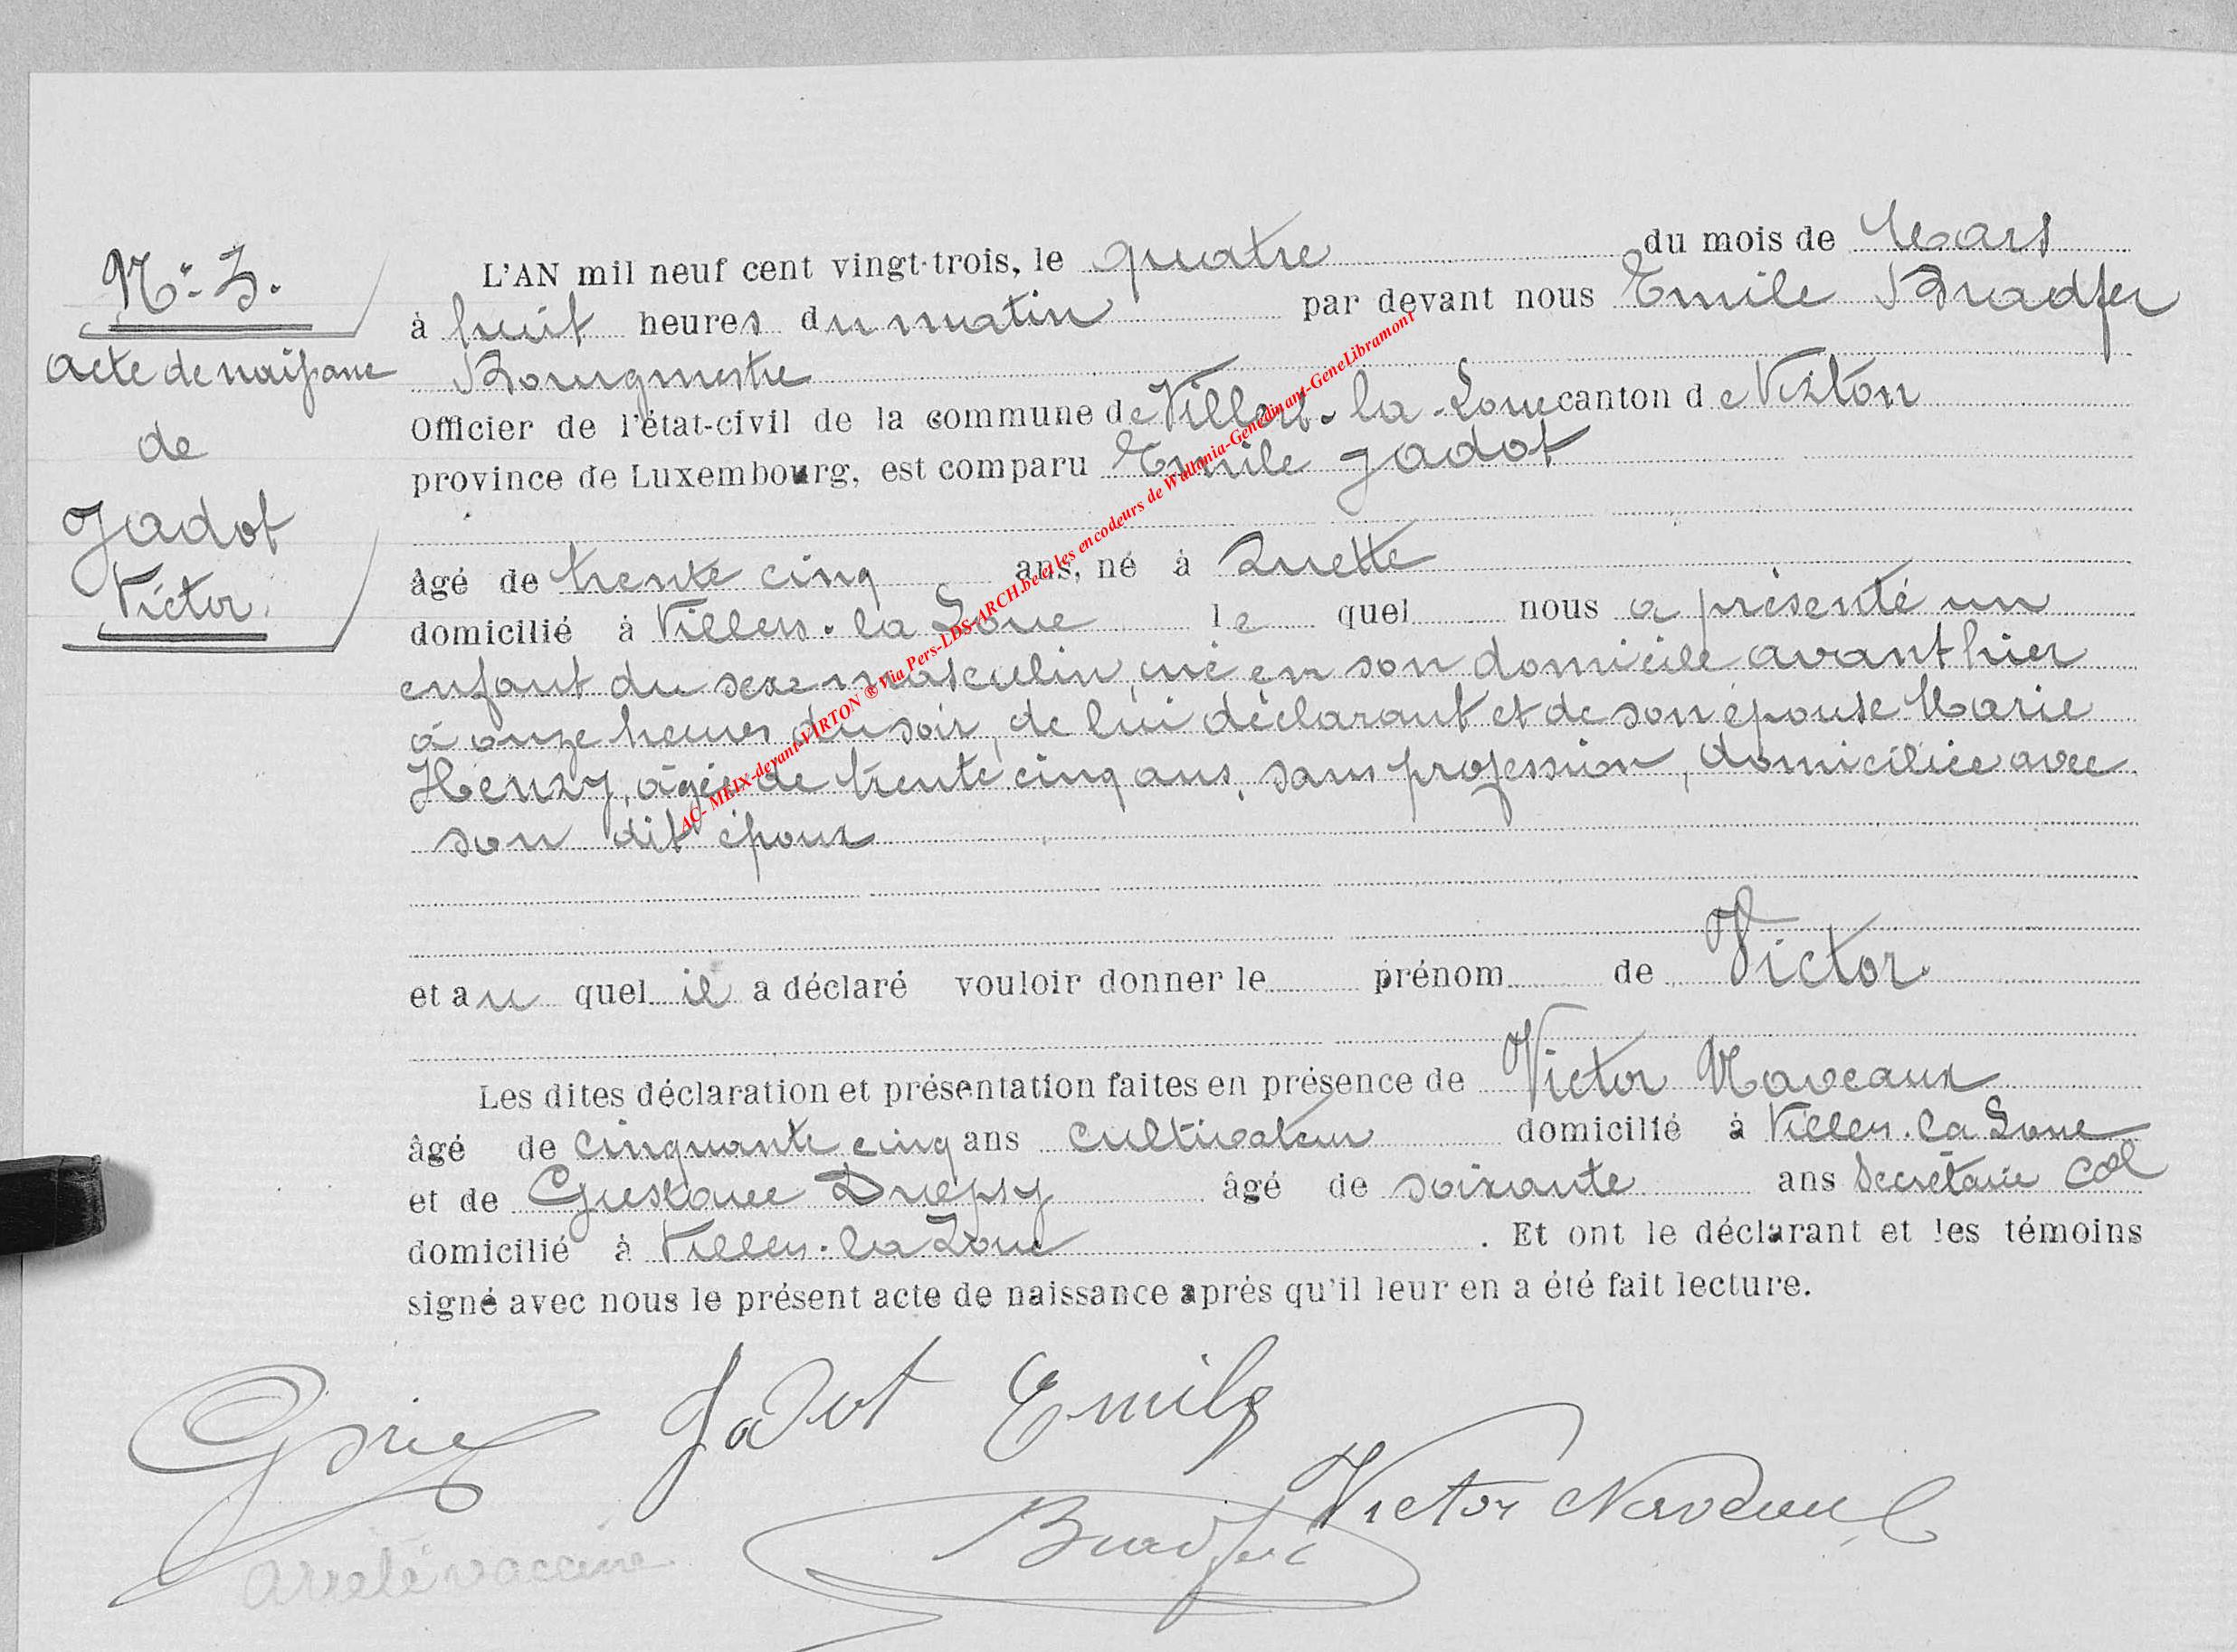 N° 3.
acte de naissance
de
Jadot
Victor.
L'AN mil neuf cent vingt-trois, le quatre du mois de Mars
à huit heures du matin par devant nous Emile Bradfer
Bourgmestre
Officier de l'état-civil de la commune de Villers-la-Loue canton de Virton
province de Luxembourg, est comparu Emile Jadot
âgé de trente cinq ans, né à Ruette
domicilié à Villers-la Loue le quel nous a présenté un
enfant du sexe masculin, né en son domicile avant hier
à onze heures du soir, de lui déclarant et de son épouse Marie
Henry, âgée de trente cinq ans, sans profession, domiciliée avec
son dit époux
et au quel il a déclaré vouloir donner le prénom de Victor.
Les dites déclaration et présentation faites en présence de Victor Naveaux
âgé de cinquante cinq ans cultivateur domicilié à Villers-la Loue
et de Gustave âgé de soixante ans secrétaire Cal
domicilié à Villers-la Loue . Et ont le déclarant et les témoins
signé avec nous le présent acte de naissance après qu'il leur en a été fait lecture.
Jadot Emile
Victor Naveaux
Bradfer
AC- MEIX-devant-VIRTON ® Via Pers-LDS-ARCH.be et les encodeurs de Wallonia-Genedinant-GeneLibramont